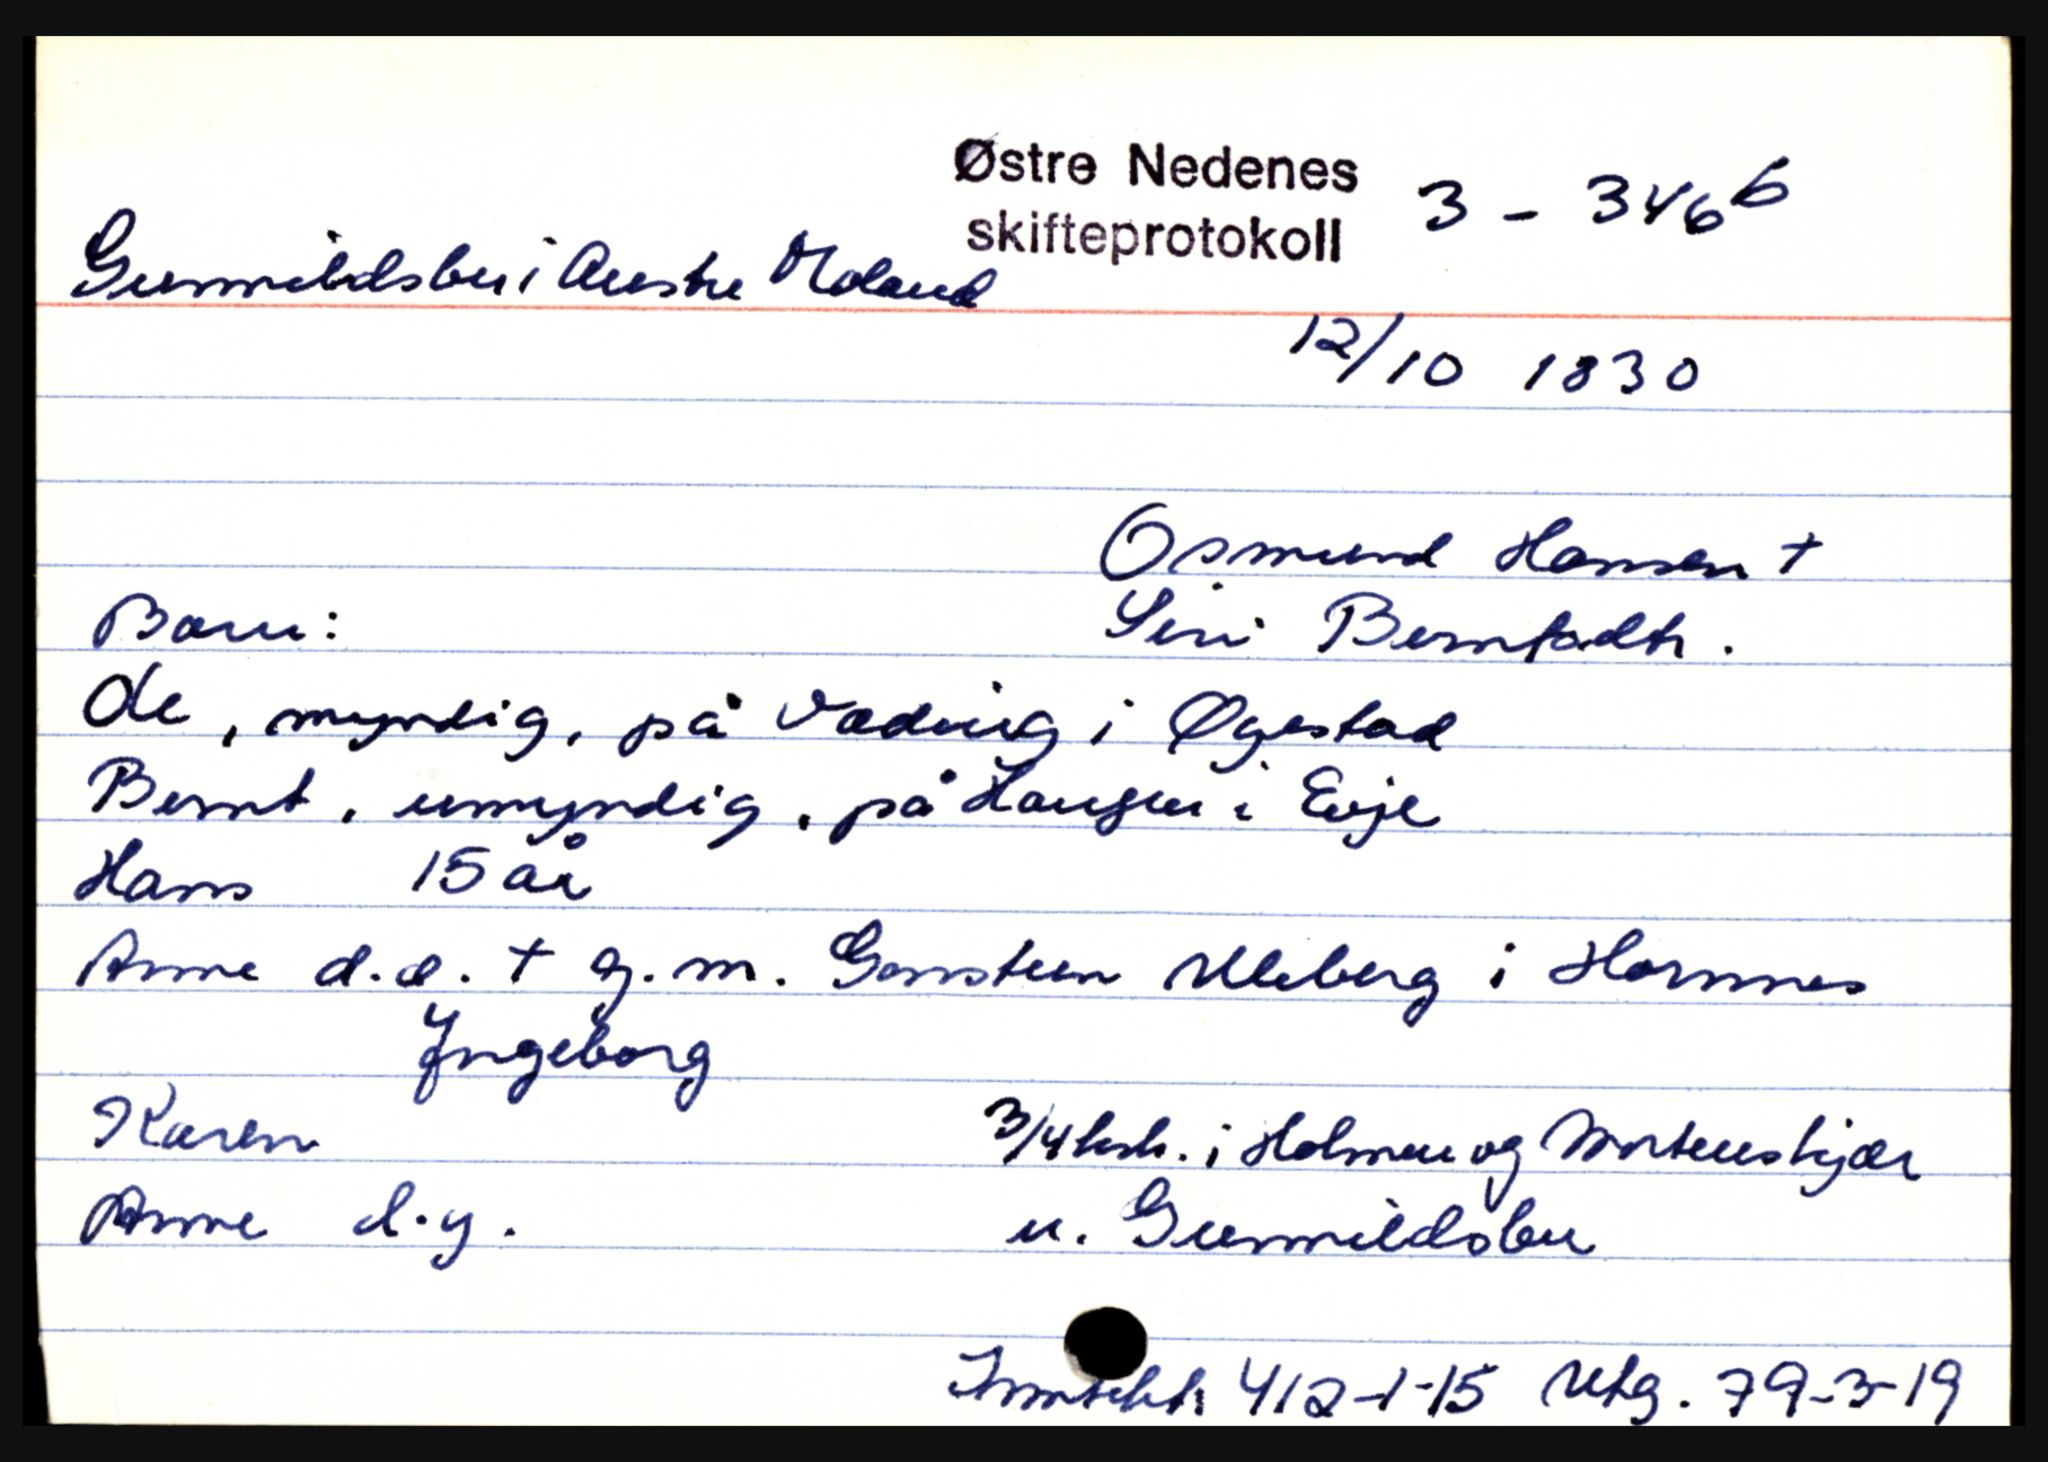 Østre Nedenes
skifteprotokoll 3 - 346 b
Gunnildsbu i Austre Moland
12/10 1830
Osmund Hansen +
Barn: Siri Berntsdtr.
Ole, myndig, på Vædning i Øyestad
Bernt, umyndig, på Haugen i Evje
Hans 15 år
Anne d.e. + g.m. Gonsteen Uleberg i Hornnes
Ingeborg
Karen 3/4 hsh. i Holmen og Mortenskjær
Anne d.y. u. Gunnildsbu
Inntekt 412-1-15 Utg. 79-3-19